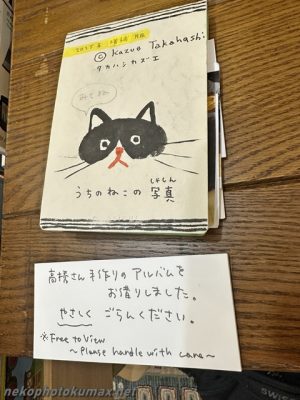 © Kazue Takahashi
タカハシカズエ
みてね
うちのねこの 写真
しゃしん
高橋さん手作りのアルバムを
お借りしました。
やさしく ごらんください。
※Free to View
～Please handle with care～
nekophotokumax.net